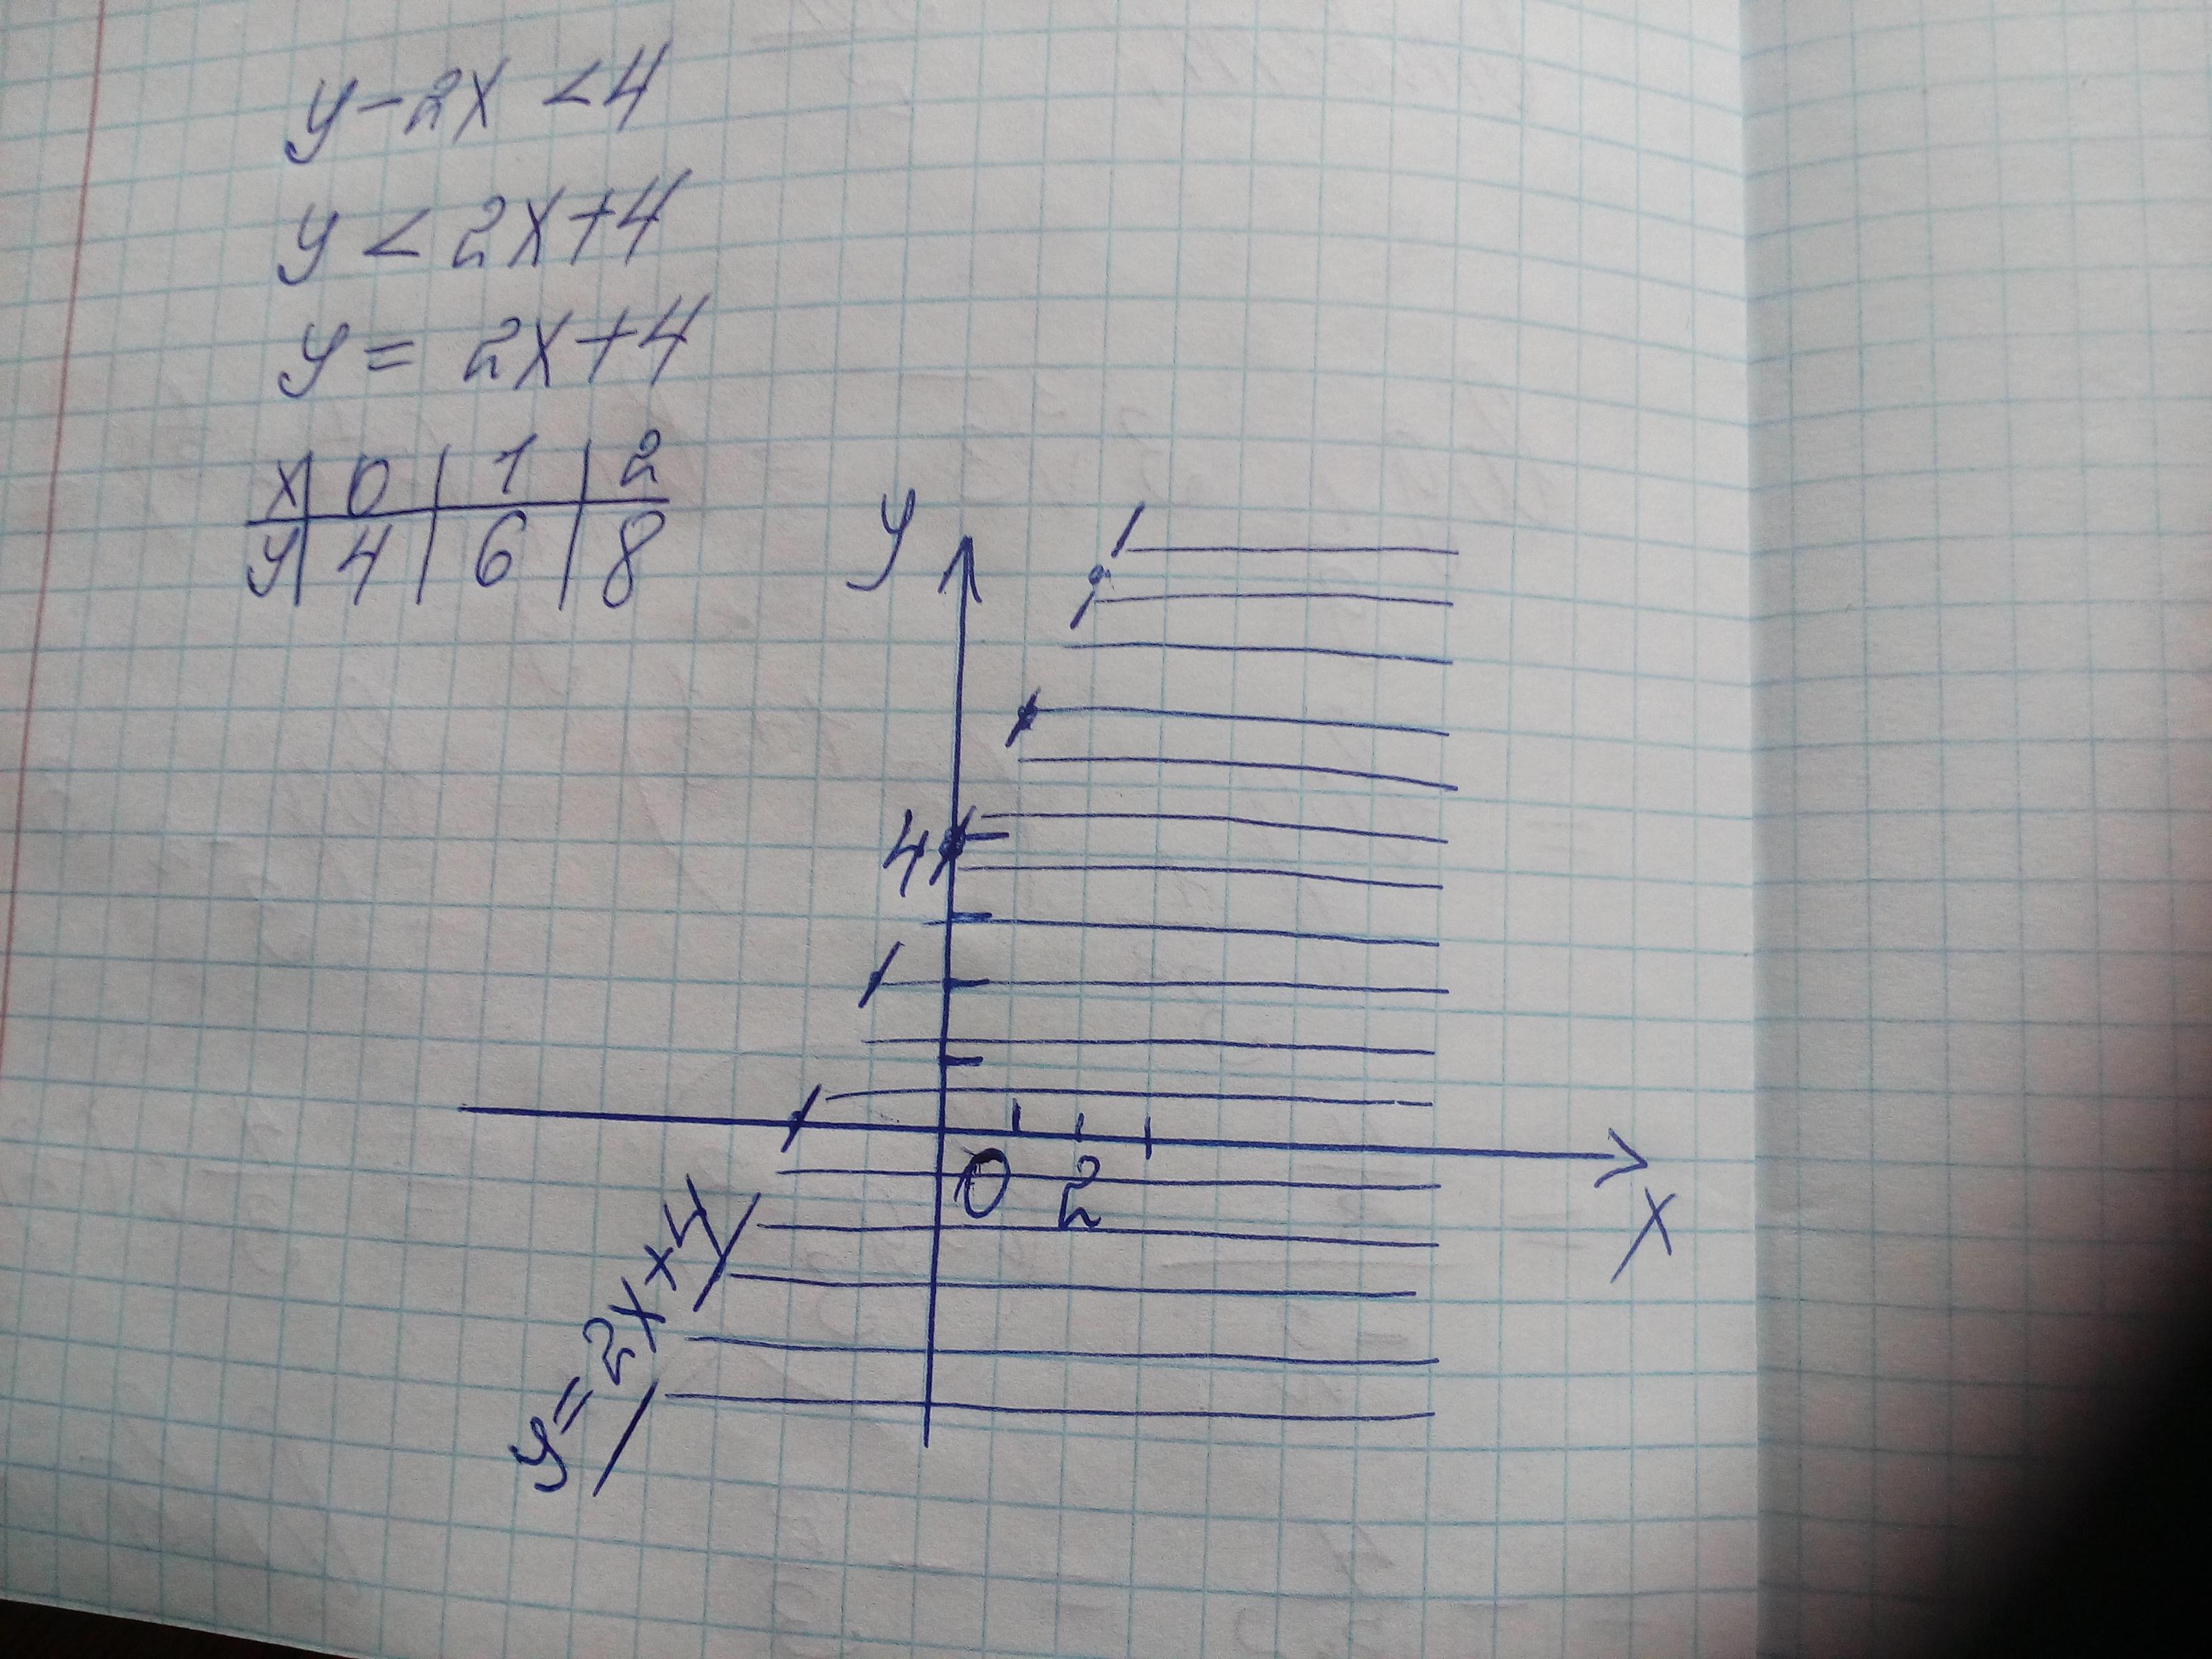 y-2x <4
y < 2x+4
y = 2x+4
x 0 1 2
y 4 6 8
y
4
0 2
x
y=2x+4